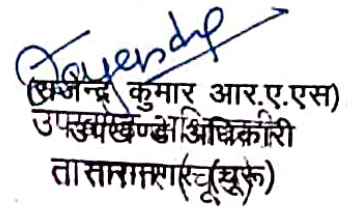 (राजेन्द्र कुमार आर.ए.एस)
उपखण्ड अधिकारी
तारानगर (चूरू)